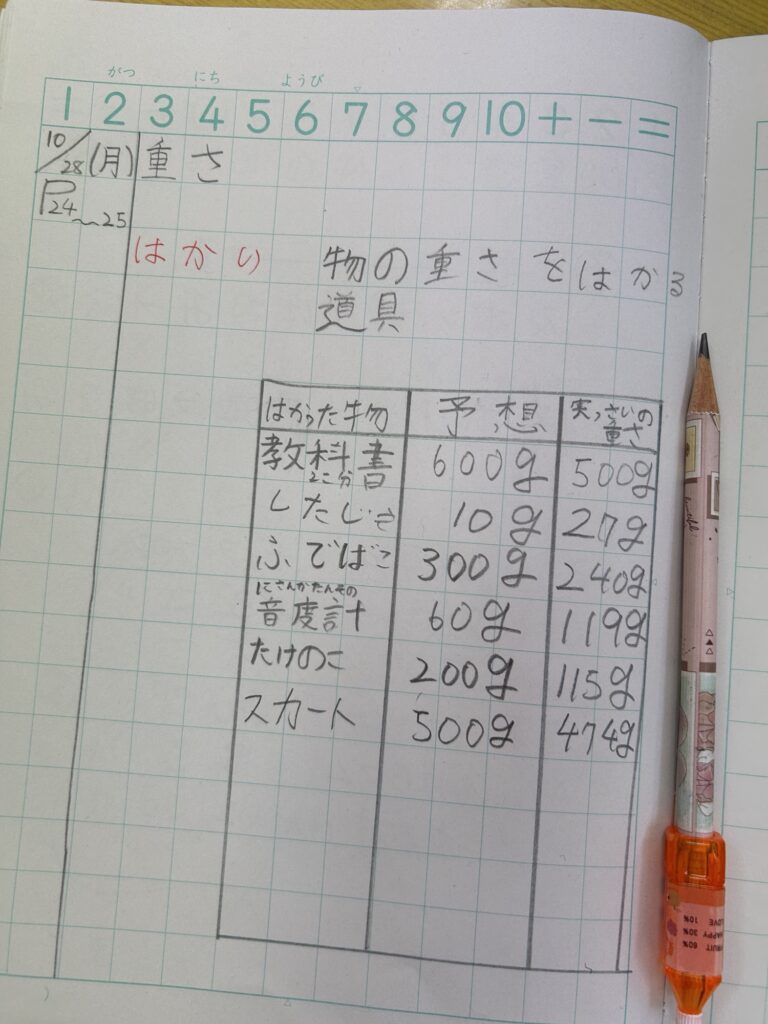 がつ にち ようび
1 2 3 4 5 6 7 8 9 10 + − =
10/28(月) 重さ
P24〜25
はかり 物の重さをはかる
道具
はかった物 予想 実っさいの重さ
教科書 2こ分 600g 500g
したじき 10g 27g
ふでばこ 300g 240g
にさんかたんその
音度計 60g 119g
たけのこ 200g 115g
スカート 500g 474g
FRUIT 60%
HAPPY 30%
LOVE 10%